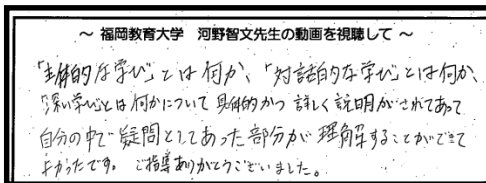 ～ 福岡教育大学　河野智文先生の動画を視聴して ～
「主体的な学び」とは何か、「対話的な学び」とは何か、
「深い学び」とは何かについて 具体的かつ 詳しく説明がされてあって
自分の中で疑問としてあった部分が 理解することができて
よかったです。 ご指導ありがとうございました。